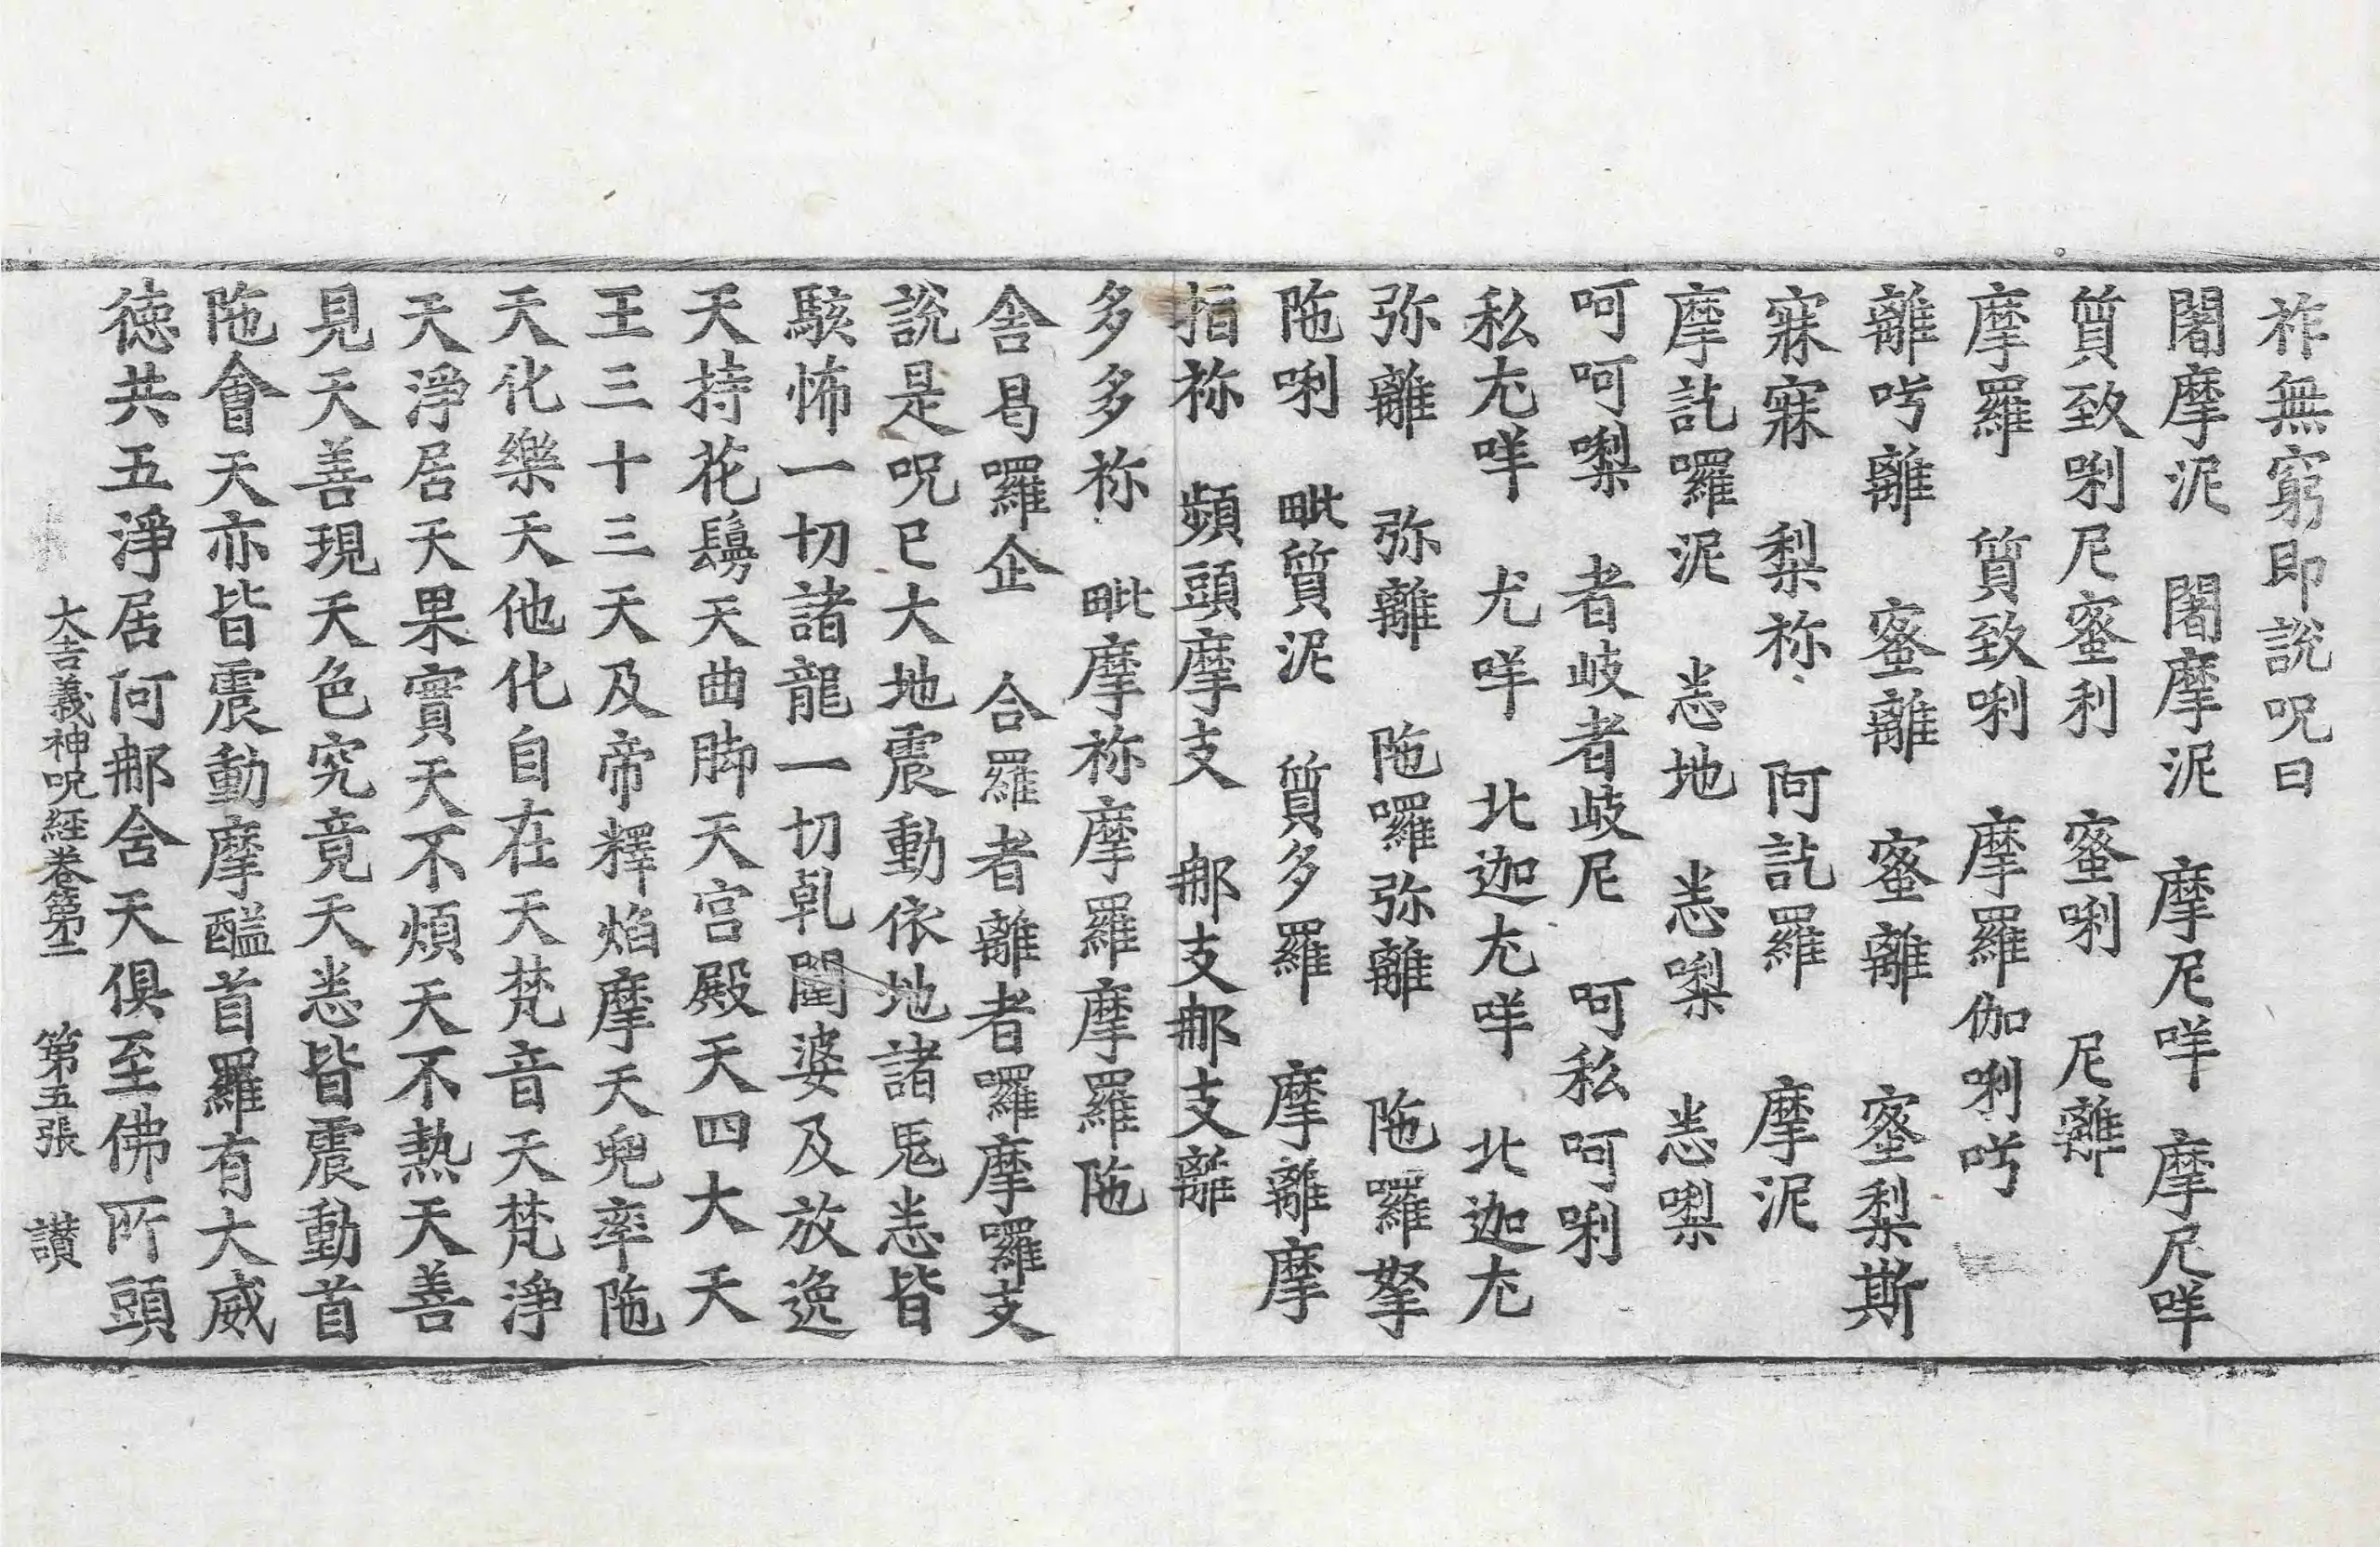 祚無窮即說呪曰
闍摩泥　闍摩泥　摩尼哶　摩尼哶
質致唎尼蜜利　蜜唎　尼離
摩羅　質致唎　摩羅伽唎吁
離吁離　蜜離　蜜離　蜜梨斯
寐寐　梨祢　阿訖羅　摩泥
摩訖囉泥　恙地　恙㗚　恙㗚
呵呵㗚　者岐者岐尼　呵私呵唎
私尤哶　尤哶　北迦尤哶　北迦尤
弥離　弥離　陁囉弥離　陁羅拏
陁唎　毗質泥　質多羅　摩離摩
指祢　頻頭摩支　那支那支離
多多祢　毗摩祢摩羅摩羅陁
舍曷囉企　合羅者離者囉摩囉支
說是呪已大地震動依地諸鬼恙皆
駭怖一切諸龍一切乹闥婆及放逸
天持花鬘天曲脚天宮殿天四大天
王三十三天及帝釋焰摩天兜率陁
天化樂天他化自在天梵音天梵淨
天淨居天果實天不煩天不熱天善
見天善現天色究竟天恙皆震動首
陁會天亦皆震動摩醯首羅有大威
徳共五淨居何那舍天俱至佛所頭
大吉義神呪經卷第二　第五張　讃